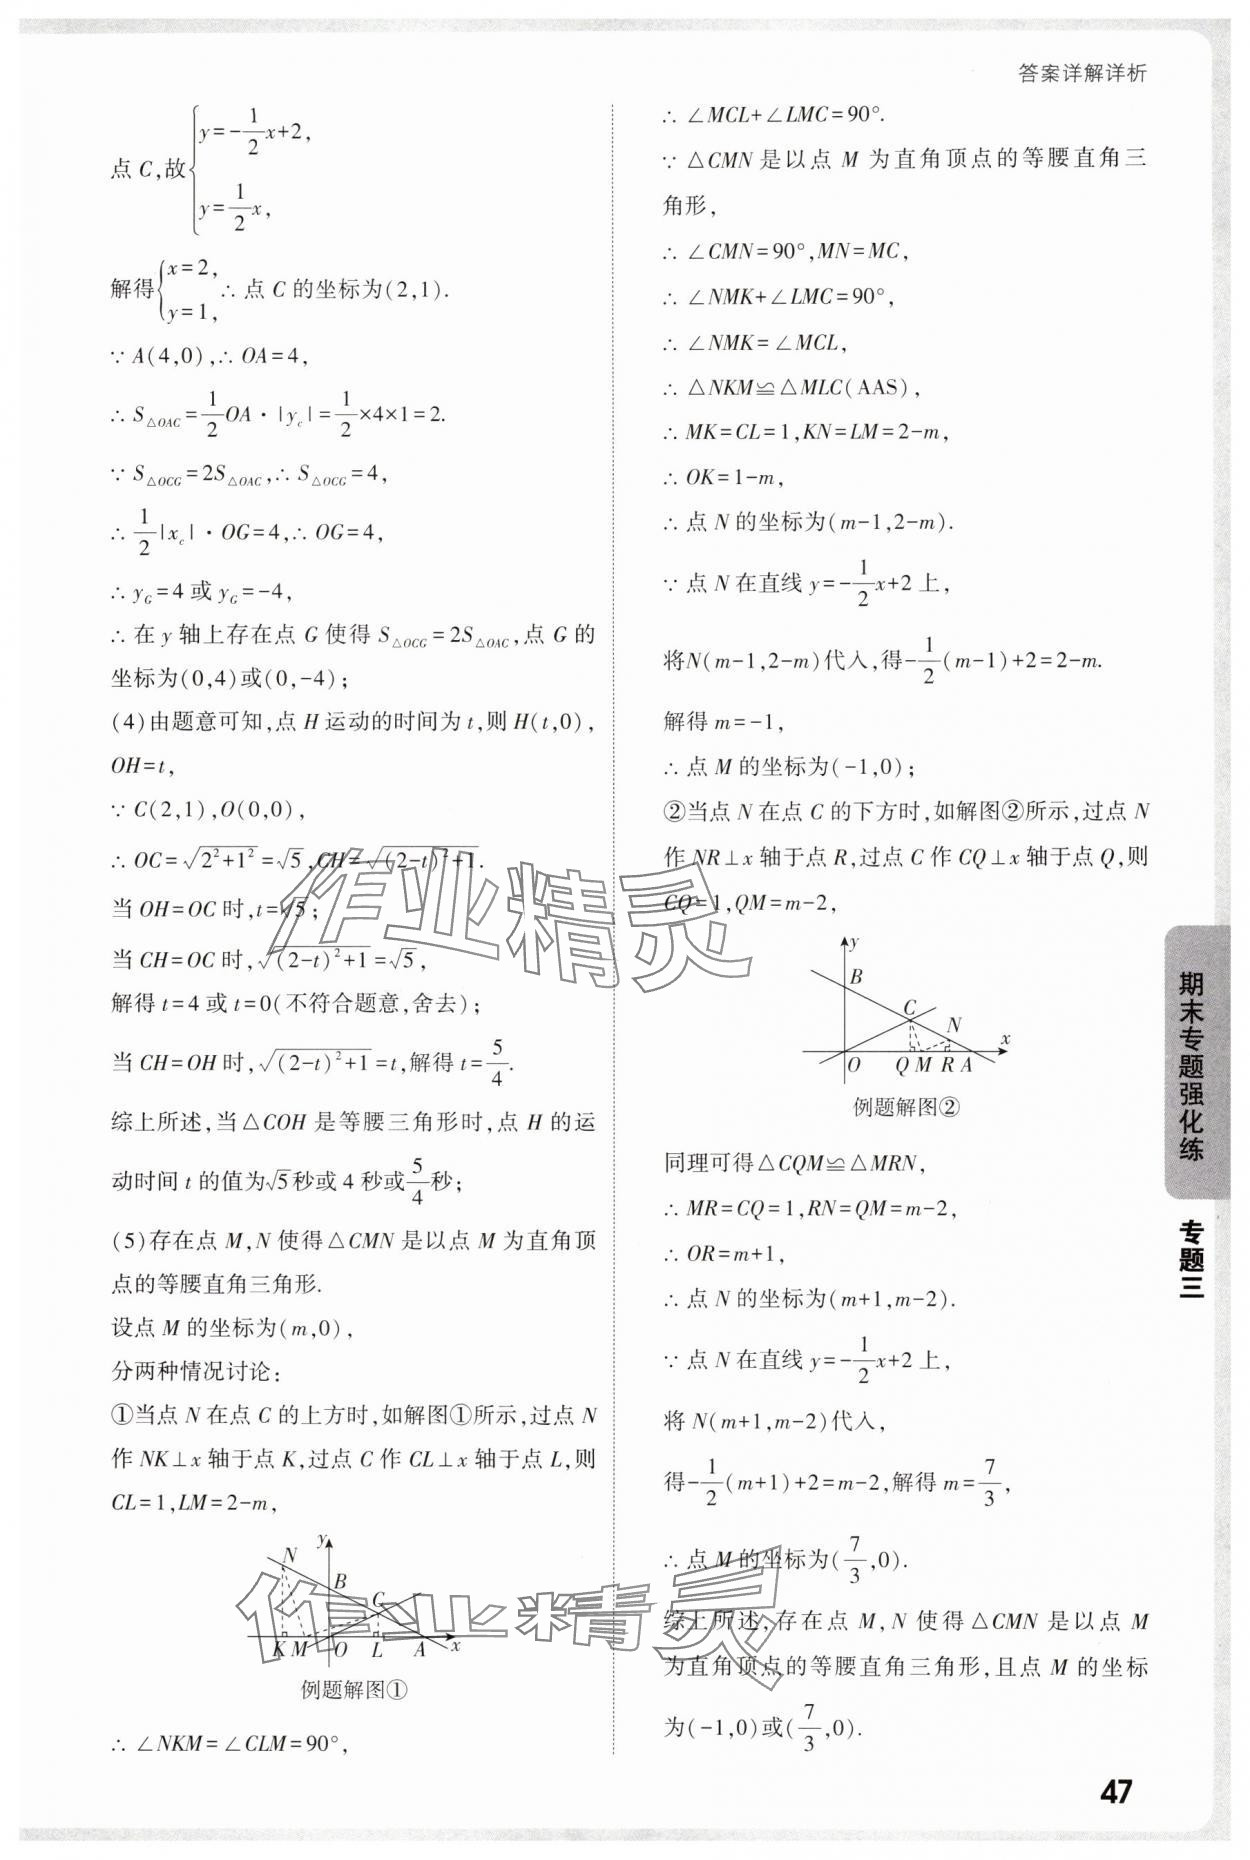 答案详解详析
点 C,故{y=-1/2x+2,
y=1/2x,
解得{x=2,
y=1,
∴点 C 的坐标为(2,1).
∵A(4,0),∴OA=4,
∴S△OAC=1/2OA·|yc|=1/2×4×1=2.
∵S△OCG=2S△OAC,∴S△OCG=4,
∴1/2|xc|·OG=4,∴OG=4,
∴yG=4 或 yG=-4,
∴在 y 轴上存在点 G 使得 S△OCG=2S△OAC,点 G 的
坐标为(0,4)或(0,-4);
(4)由题意可知,点 H 运动的时间为 t,则 H(t,0),
OH=t,
∵C(2,1),O(0,0),
∴OC=√(2²+1²)=√5,CH=√((2-t)²+1).
当 OH=OC 时,t=√5;
当 CH=OC 时,√((2-t)²+1)=√5,
解得 t=4 或 t=0(不符合题意,舍去);
当 CH=OH 时,√((2-t)²+1)=t,解得 t=5/4.
综上所述,当△COH 是等腰三角形时,点 H 的运
动时间 t 的值为√5秒或 4 秒或5/4秒;
(5)存在点 M,N 使得△CMN 是以点 M 为直角顶
点的等腰直角三角形.
设点 M 的坐标为(m,0),
分两种情况讨论:
①当点 N 在点 C 的上方时,如解图①所示,过点 N
作 NK⊥x 轴于点 K,过点 C 作 CL⊥x 轴于点 L,则
CL=1,LM=2-m,
y
N
B
C
K M O L A x
例题解图①
∴∠NKM=∠CLM=90°,
∴∠MCL+∠LMC=90°.
∵△CMN 是以点 M 为直角顶点的等腰直角三
角形,
∴∠CMN=90°,MN=MC,
∴∠NMK+∠LMC=90°,
∴∠NMK=∠MCL,
∴△NKM≌△MLC(AAS),
∴MK=CL=1,KN=LM=2-m,
∴OK=1-m,
∴点 N 的坐标为(m-1,2-m).
∵点 N 在直线 y=-1/2x+2 上,
将N(m-1,2-m)代入,得-1/2(m-1)+2=2-m.
解得 m=-1,
∴点 M 的坐标为(-1,0);
②当点 N 在点 C 的下方时,如解图②所示,过点 N
作 NR⊥x 轴于点 R,过点 C 作 CQ⊥x 轴于点 Q,则
CQ=1,QM=m-2,
y
B
C
N
x
O Q M R A
例题解图②
同理可得△CQM≌△MRN,
∴MR=CQ=1,RN=QM=m-2,
∴OR=m+1,
∴点 N 的坐标为(m+1,m-2).
∵点 N 在直线 y=-1/2x+2 上,
将 N(m+1,m-2)代入,
得-1/2(m+1)+2=m-2,解得 m=7/3,
∴点 M 的坐标为(7/3,0).
综上所述,存在点 M,N 使得△CMN 是以点 M
为直角顶点的等腰直角三角形,且点 M 的坐标
为(-1,0)或(7/3,0).
期末专题强化练
专题三
47
作业精灵
作业精灵